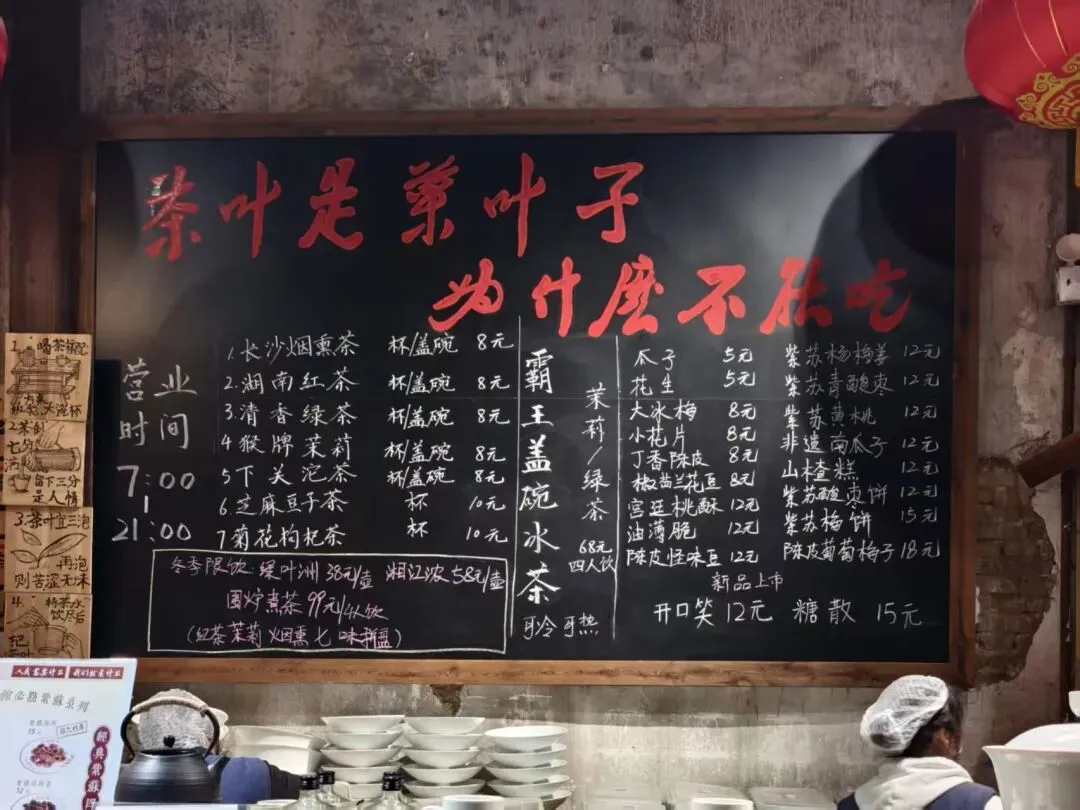 茶叶是菜叶子
为什麽不在吃
营业
时间
7:00
21:00
1.长沙烟熏茶 杯/盖碗 8元
2.湖南红茶 杯/盖碗 8元
3清香绿茶 杯/盖碗 8元
4猴牌茉莉 杯/盖碗 8元
5下关沱茶 杯/盖碗 8元
6芝麻豆子茶 杯 10元
7菊花枸杞茶 杯 10元
冬季限饮 绿叶洲38元/壶 湘江浓58元/壶
围炉煮茶99元/4人饮
(红茶茉莉烟熏七味拼盘)
霸王盖碗冰茶
可冷可热
茉莉/绿茶
68元
四人饮
瓜子 5元
花生 5元
大冰梅 8元
小花片 8元
丁香陈皮 8元
椒盐兰花豆 8元
宫廷桃酥 12元
油薄脆 12元
陈皮怪味豆 12元
紫苏杨梅姜 12元
紫苏青酸枣 12元
紫苏黄桃 12元
非遗南瓜子 12元
山楂糕 12元
紫苏酸枣饼 12元
紫苏梅饼 15元
陈皮葡萄梅子 18元
新品上市
开口笑 12元 糖散 15元
1.喝茶
大泡杯
2茶斟
七分
留下三分
是人情
3.茶叶宜三泡
再泡
则苦涩无味
4.
特茶水
饮尽后
把
15元
12元